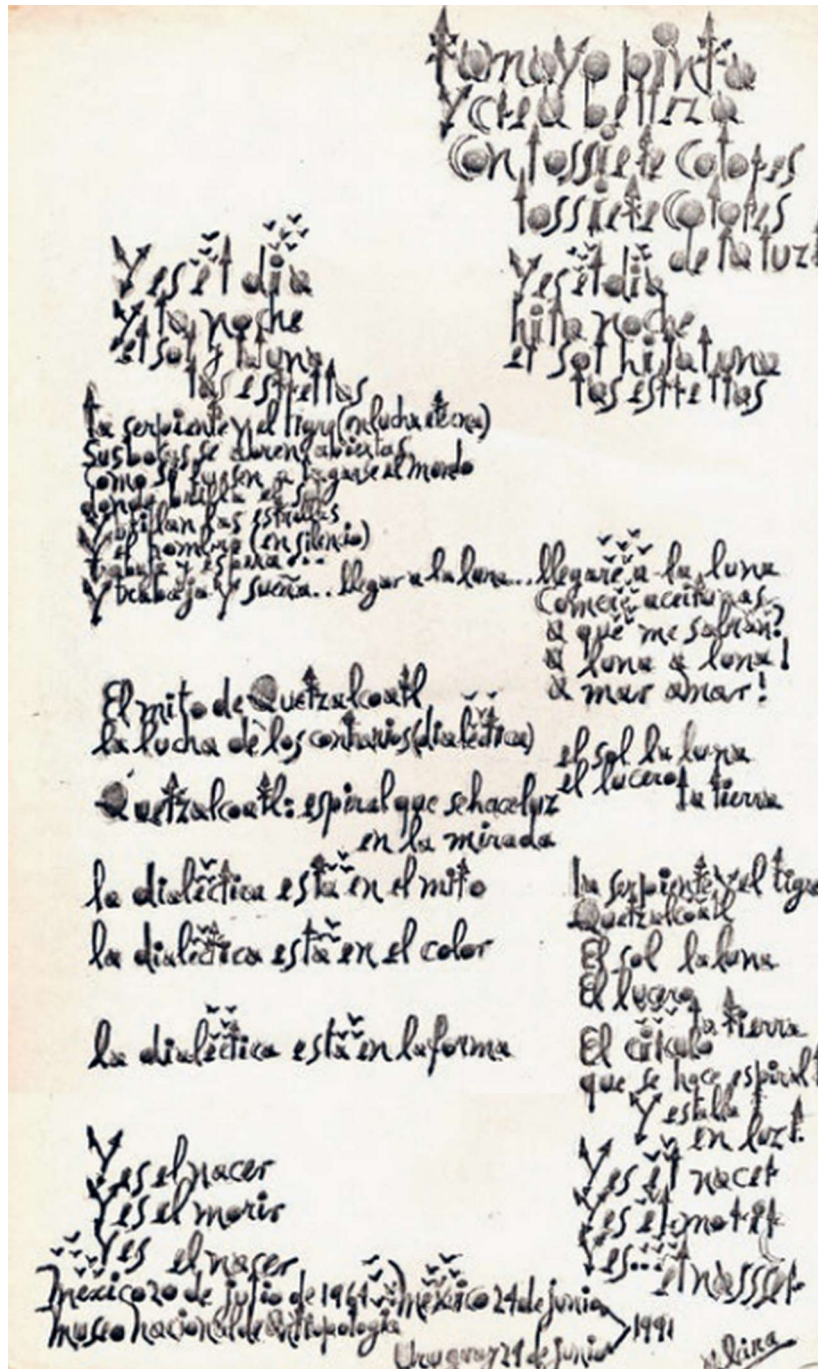 tamayo pinta
y crea belleza
Con los siete colores
los siete colores
de la luz
Y es el dia
y la noche
el sol y la luna
las estrellas
Y es el dia
hi la noche
el sol hi la luna
las estrellas
La serpiente y el tigre (en lucha eterna)
Sus bocas se abren abiertas
Como si fuesen a tragarse al mondo
donde brilla el sol
Y brillan las estrellas
Y el hombre (en silencio)
trabaja y espera...
Y trabaja y sueña.. llegar a la luna...
llegaré a la luna
Comeré aceitunas
a qué me sabrán?
a luna a luna!
a mar amar!
El mito de Quetzalcoatl
la lucha de los contrarios (dialéctica)
Quetzalcoatl: espiral que se hace luz
en la mirada
la dialéctica está en el mito
la dialéctica está en el color
la dialéctica está en la forma
el sol la luna
el lucero
la tierra
la serpiente y el tigre
Quetzalcoatl
El sol la luna
El lucero
la tierra
El círculo
que se hace espiral
Y estalla
en luz
Y es el nacer
Y es el morir
Y es el nacer
Y es el nacer
Y es el morir
Y es...
el nasser
México 20 de julio de 1964
Museo nacional de Antropologia
México 24 de junio
Uruguay 29 de junio
1991